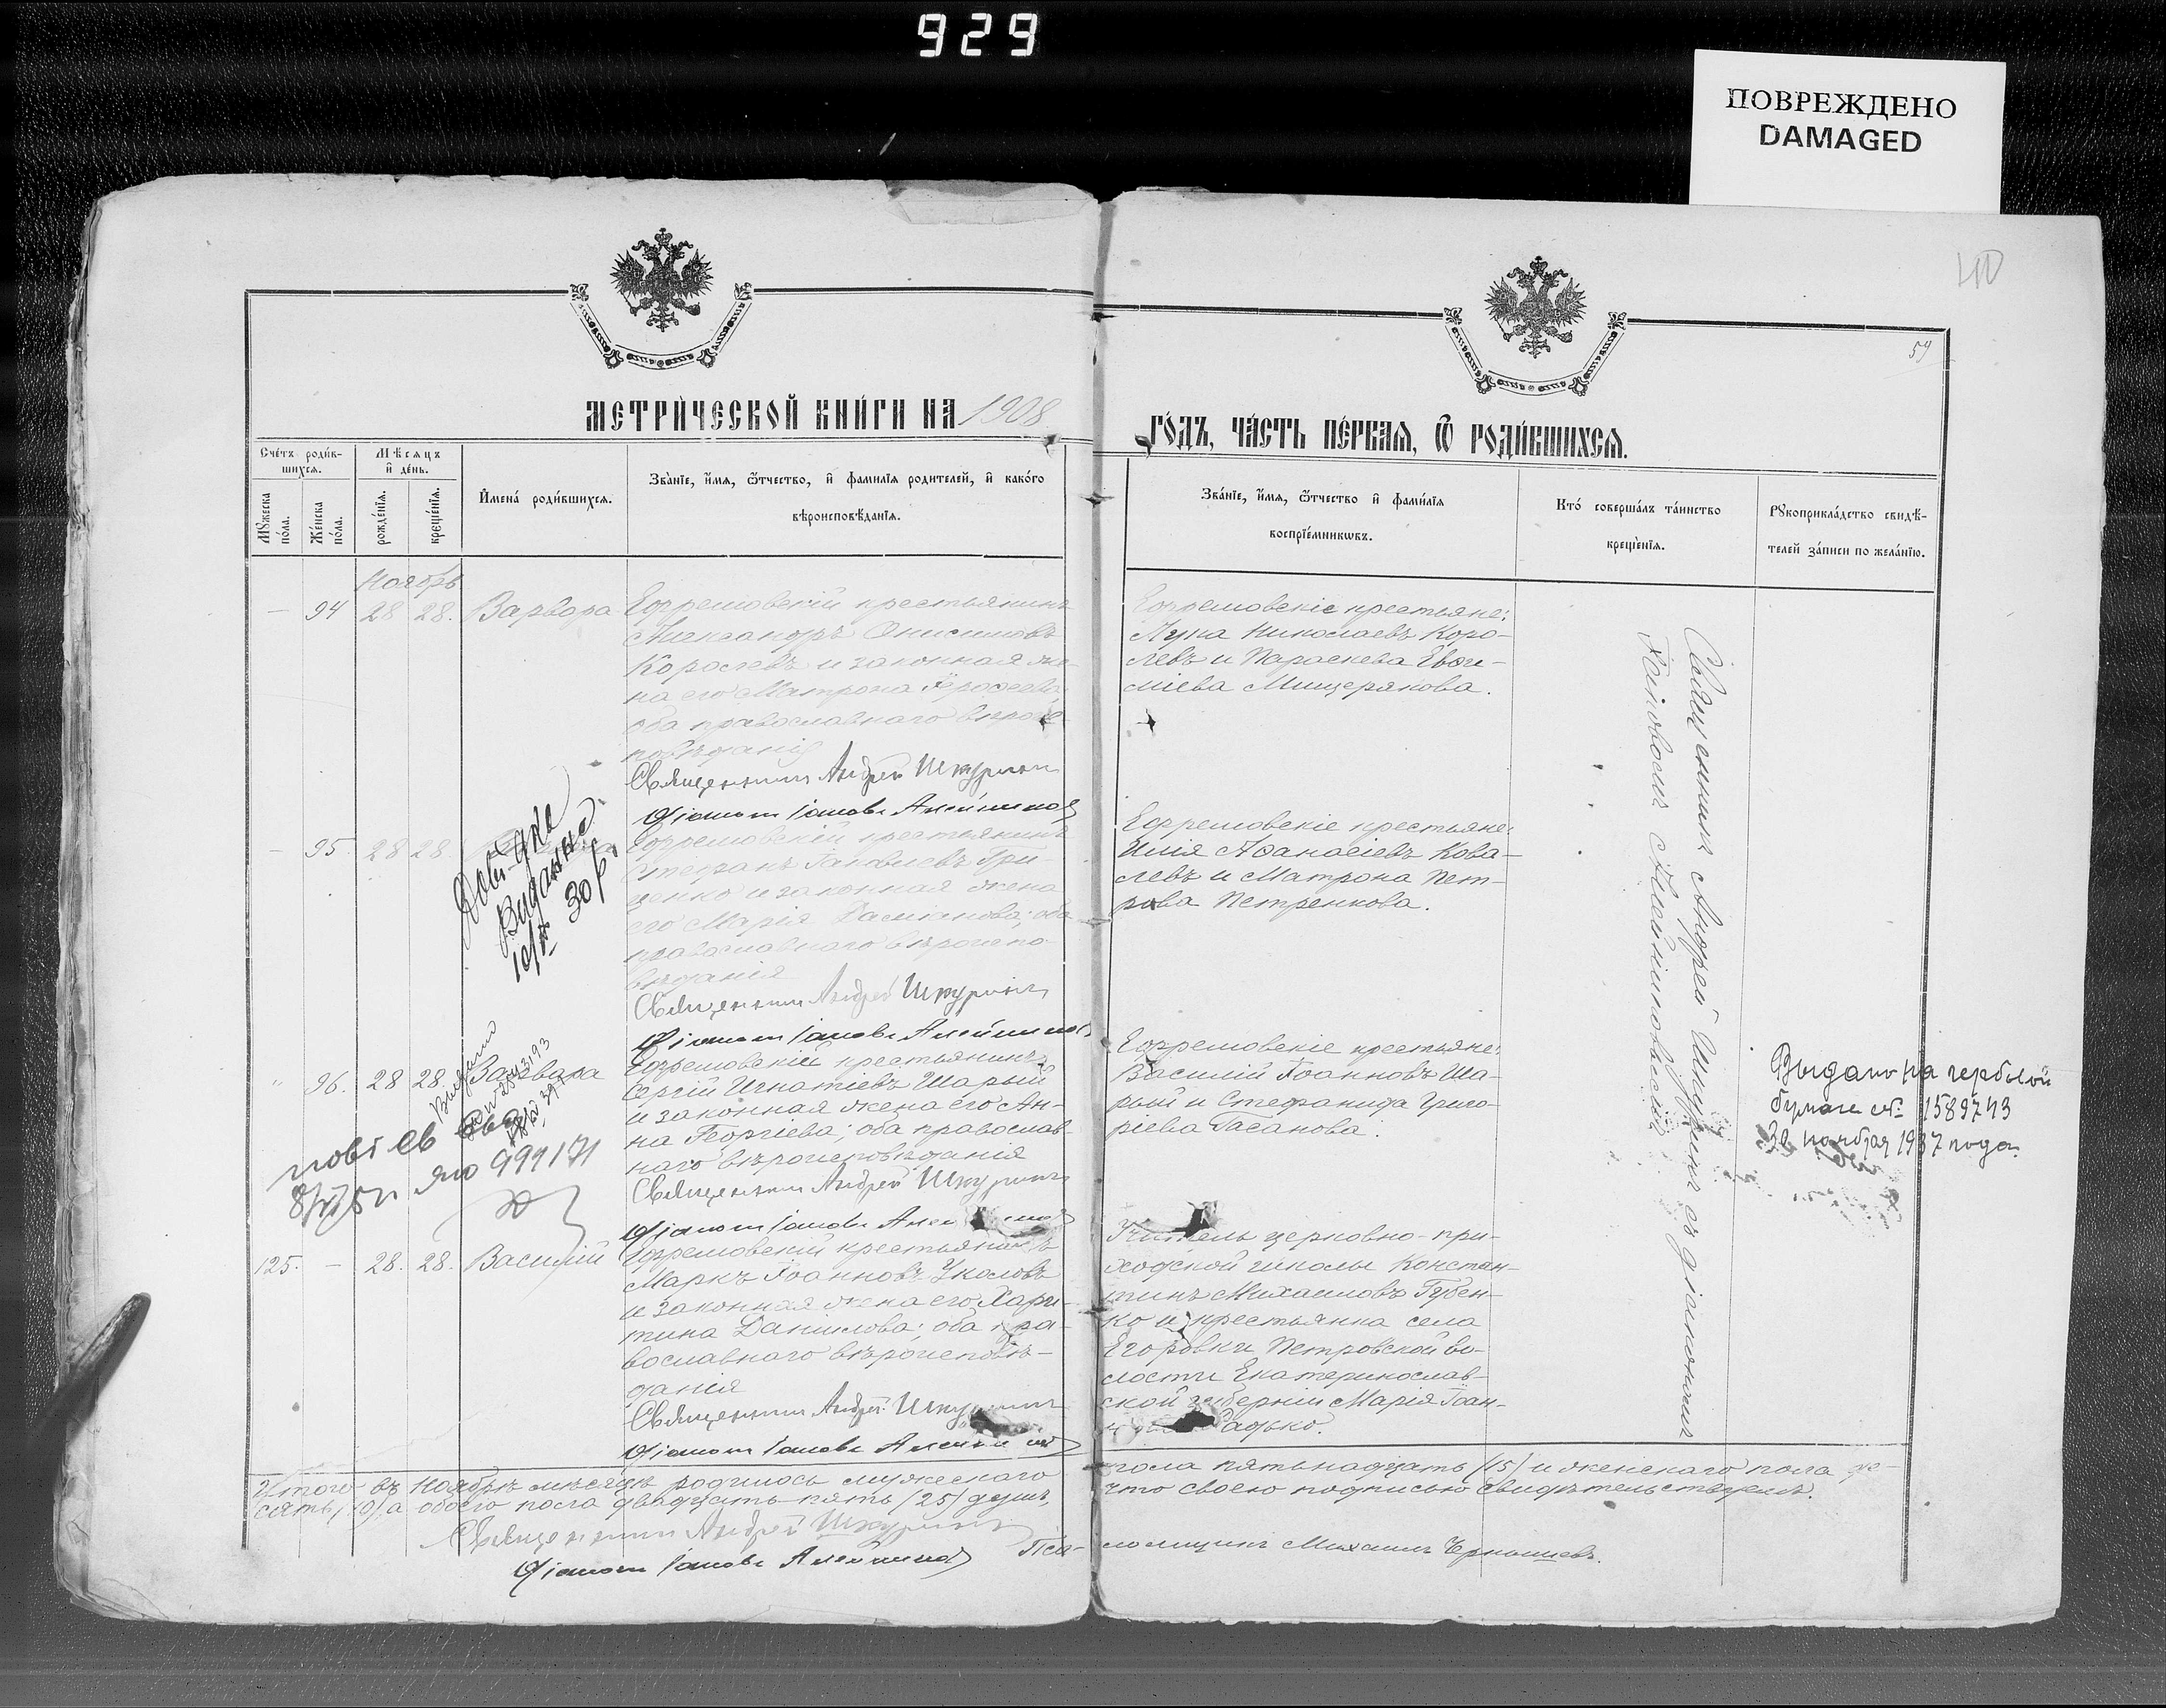 929
ПОВРЕЖДЕНО
DAMAGED
40
59
МЕТРИ́ЧЕСКОЙ КНИ́ГИ НА 1908
ГО́ДЪ, ЧА́СТЬ ПЕ́РВАЯ, Ѿ РОДИ́ВШИХСЯ.
Сче́тъ роди́в-
шихся.
Мѣсяцъ
и де́нь.
Му́жеска
по́ла.
Же́нска
по́ла.
рожде́нїя.
креще́нїя.
Имена́ роди́вшихся.
Зва́нїе, и́мя, ѻ́тчество, и фами́лїя родителей, и како́го
вѣроисповѣ́данїя.
Зва́нїе, и́мя, ѻ́тчество и фами́лїя
воспрїе́мниковъ.
Кто́ соверша́лъ та́инство
креще́нїя.
Рукоприкла́дство свидѣ́-
телей за́писи по жела́нїю.
Ноябрь
— 94 28 28. Варвара
Ефремовскій крестьянинъ
Александръ Онисимовъ
Королевъ и законная же-
на его Матрона
оба православнаго вѣроис-
повѣданія
Священникъ Андрей Шкуринъ
Діаконъ Іаковъ Алейников
Ефремовскіе крестьяне:
Лука Николаевъ Коро-
левъ и Параскева Евѳи-
міева Мищерякова.
— 95 28 28
Ефремовскій крестьянинъ
Стефанъ Гри-
ценко и законная жена
его Марія Даміанова; оба
православнаго вѣроиспо-
вѣданія
Священникъ Андрей Шкуринъ
Діаконъ Іаковъ Алейников
Ефремовскіе крестьяне:
Илія Аѳанасіевъ Кова-
левъ и Матрона Пет-
рова Петренкова.
30 р.
" 96. 28 28. Варвара
Ефремовскій крестьянинъ
Сергій Игнатіевъ Шарый
и законная жена его Ан-
на Георгіева; оба православ-
наго вѣроисповѣданія
Священникъ Андрей Шкуринъ
Діаконъ Іаковъ
Ефремовскіе крестьяне:
Василій Іоанновъ Ша-
рый и Стефанида Григо-
ріева Гасанова.
994171
Выдано на гербовой
бумаге № 1589743
30 ноября 1937 года
125. — 28. 28. Василій
Ефремовскій крестьянинъ
Маркъ Іоанновъ Уколовъ
и законная жена его Хари-
тина Данилова; оба пра-
вославнаго вѣроисповѣ-
данія
Священникъ Андрей Шкуринъ
Діаконъ Іаковъ
Учитель церковно-при-
ходской школы Констан-
тинъ Михаиловъ Губен-
ко и крестьянка села
Егоровки Петровской во-
лости Екатеринослав-
ской губерніи Марія Іоан-
Радько.
Священникъ Андрей Шкуринъ съ діакономъ
Іаковомъ Алейниковымъ
Итого въ Ноябрѣ мѣсяцѣ родилось мужескаго пола пятьнадцать (15) и женскаго пола де-
сять (10), а обоего пола двадцать пять (25) душъ, что своею подписью свидѣтельствуемъ.
Священникъ Андрей Шкуринъ
Діаконъ Іаковъ Алейников Пса- ломщикъ Михаилъ Чернышевъ.